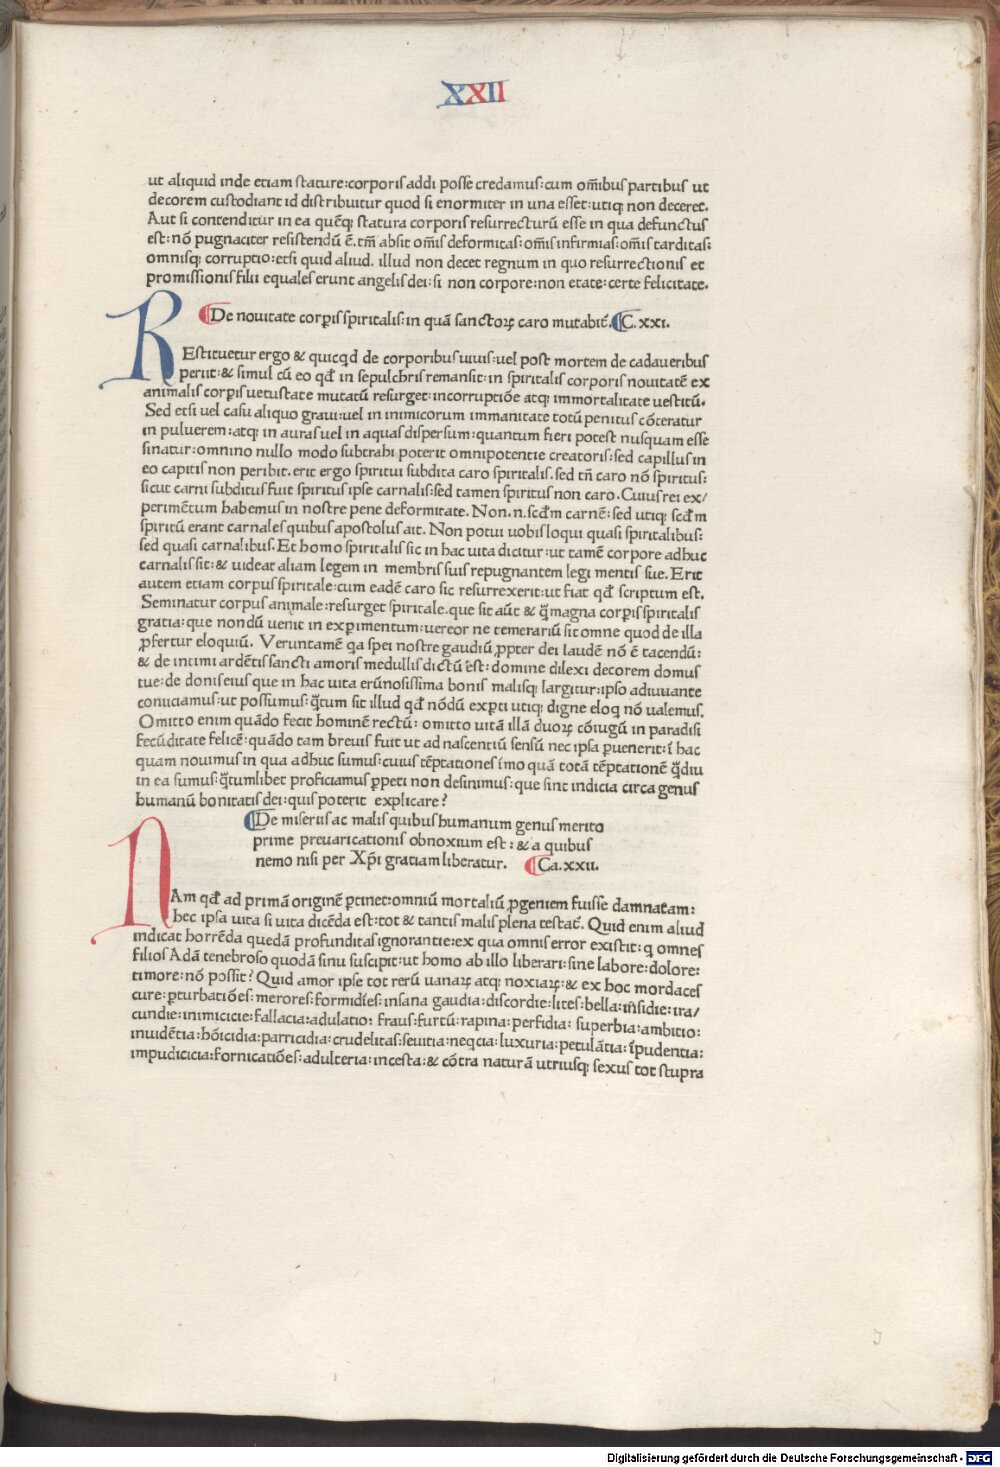 XXII
ut aliquid inde etiam stature: corporis addi posse credamus: cum om̄ibus partibus ut
decorem custodiant id distribuitur quod si enormiter in una esset: utiq; non deceret.
Aut si contenditur in ea quēq; statura corporis resurrecturū esse in qua defunctus
est: nō pugnaciter resistendū ē. tm̄ absit om̄is deformitas: om̄is infirmias: om̄is tarditas:
omnisq; corruptio: etsi quid aliud. illud non decet regnum in quo resurrectionis et
promissionis filii equales erunt angelis dei: si non corpore: non etate: certe felicitate.
¶De nouitate corp̄is spiritalis: in quā sanctoꝝ caro mutabit̄. ¶C. xxi.
REstituetur ergo & quicqd̄ de corporibus uiuis: uel post mortem de cadaueribus
periit: & simul cū eo qd̄ in sepulchris remansit: in spiritalis corporis nouitatē ex
animalis corp̄is uetustate mutatū resurget: incorruptiōe atq; immortalitate uestitū.
Sed etsi uel casu aliquo graui: uel in inimicorum immanitate totū penitus cōteratur
in puluerem: atq; in auras uel in aquas dispersum: quantum fieri potest nusquam esse
sinatur: omnino nullo modo subtrahi poterit omnipotentie creatoris: sed capillus in
eo capitis non peribit. erit ergo spiritui subdita caro spiritalis. sed tn̄ caro nō spiritus:
sicut carni subditus fuit spiritus ipse carnalis: sed tamen spiritus non caro. Cuius rei ex/
perimētum habemus in nostre pene deformitate. Non. n. scd̄m carnē: sed utiq; scd̄m
spiritū erant carnales quibus apostolus ait. Non potui uobis loqui quasi spiritalibus:
sed quasi carnalibus. Et homo spiritalis sic in hac uita dicitur: ut tamē corpore adhuc
carnalis sit: & uideat aliam legem in membris suis repugnantem legi mentis sue. Erit
autem etiam corpus spiritale: cum eadē caro sic resurrexerit: ut fiat qd̄ scriptum est.
Seminatur corpus animale: resurget spiritale. que sit aūt & q̄ magna corp̄is spiritalis
gratia: que nondū uenit in exꝑimentum: uereor ne temerariū sit omne quod de illa
ꝓfertur eloquiū. Veruntamē qa spei nostre gaudiū ꝓpter dei laudē nō ē tacendū:
& de intimi ardētis sancti amoris medullis dictū est: domine dilexi decorem domus
tue: de donis eius que in hac uita erūnosissima bonis malisq; largitur: ipso adiuuante
coniiciamus: ut possumus: q̄tum sit illud qd̄ nōdū exꝑti utiq; digne eloq̄ nō ualemus.
Omitto enim quādo fecit hominē rectū: omitto uitā illā duoꝝ cōiugū in paradisi
fecūditate felicē: quādo tam breuis fuit ut ad nascentiū sensū nec ipsa ꝑuenerit: ī hac
quam nouimus in qua adhuc sumus: cuius tēptationes īmo quā totā tēptationē q̄diu
in ea sumus: q̄tumlibet proficiamus ꝑpeti non desinimus: que sint indicia circa genus
humanū bonitatis dei: quis poterit explicare?
¶De miseriis ac malis quibus humanum genus merito
prime preuaricationis obnoxium est: & a quibus
nemo nisi per Xp̄i gratiam liberatur. ¶Ca. xxii.
NAm qd̄ ad primā originē ꝑtinet: omniū mortaliū ꝓgeniem fuisse damnatam:
hec ipsa uita si uita dicēda est: tot & tantis malis plena testat̄. Quid enim aliud
indicat horrēda quedā profunditas ignorantie: ex qua omnis error existit: q omnes
filios Adā tenebroso quodā sinu suscipit: ut homo ab illo liberari: sine labore: dolore:
timore: nō possit? Quid amor ipse tot rerū uanaꝝ atq; noxiaꝝ: & ex hoc mordaces
cure: ꝑturbatiōes: merores: formidīes: insana gaudia: discordie: lites: bella: īnsidie: ira/
cundie: inimicicie: fallacia: adulatio: fraus: furtū: rapina: perfidia: superbia: ambitio:
inuidētia: hōicidia: parricidia: crudelitas: seuitia: neqcia: luxuria: petulātia: īpudentia:
impudicicia: fornicatiōes: adulteria: incesta: & cōtra naturā utriusq; sexus tot stupra
Digitalisierung gefördert durch die Deutsche Forschungsgemeinschaft - DFG